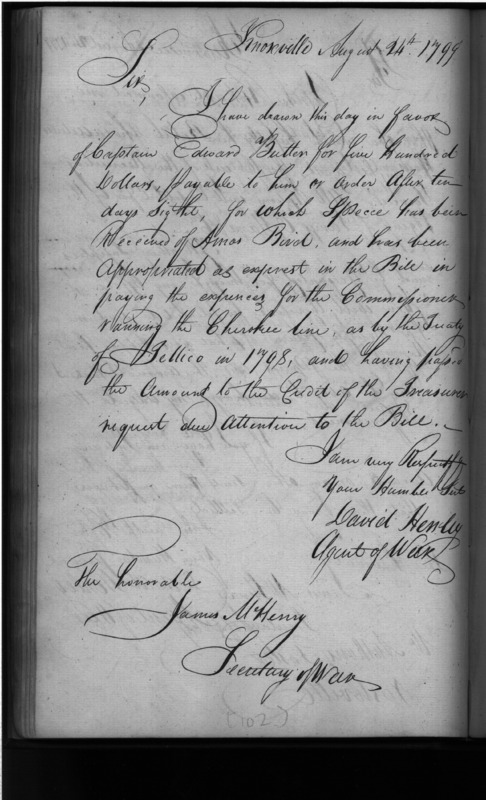 Knoxville August 24th 1799
Sir,
I have drawn this day in favor
of Captain Edward Butler for five Hundred
Dollars, Payable to him or order After ten
days Sight, for which Specce has been
Received of Amos Bird, and has been
Appropriated as exprest in the Bill in
paying the expences for the Commissioners
running the Cherokee line, as by the Treaty
of Tellico in 1798, and having passd
the Amount to the Credit of the Treasurer
request due Attention to the Bill.
I am very Respectfy
Your Humbe Sert
David Henley
Agent of War
The honorable
James McHenry
Secretary of War
(102)